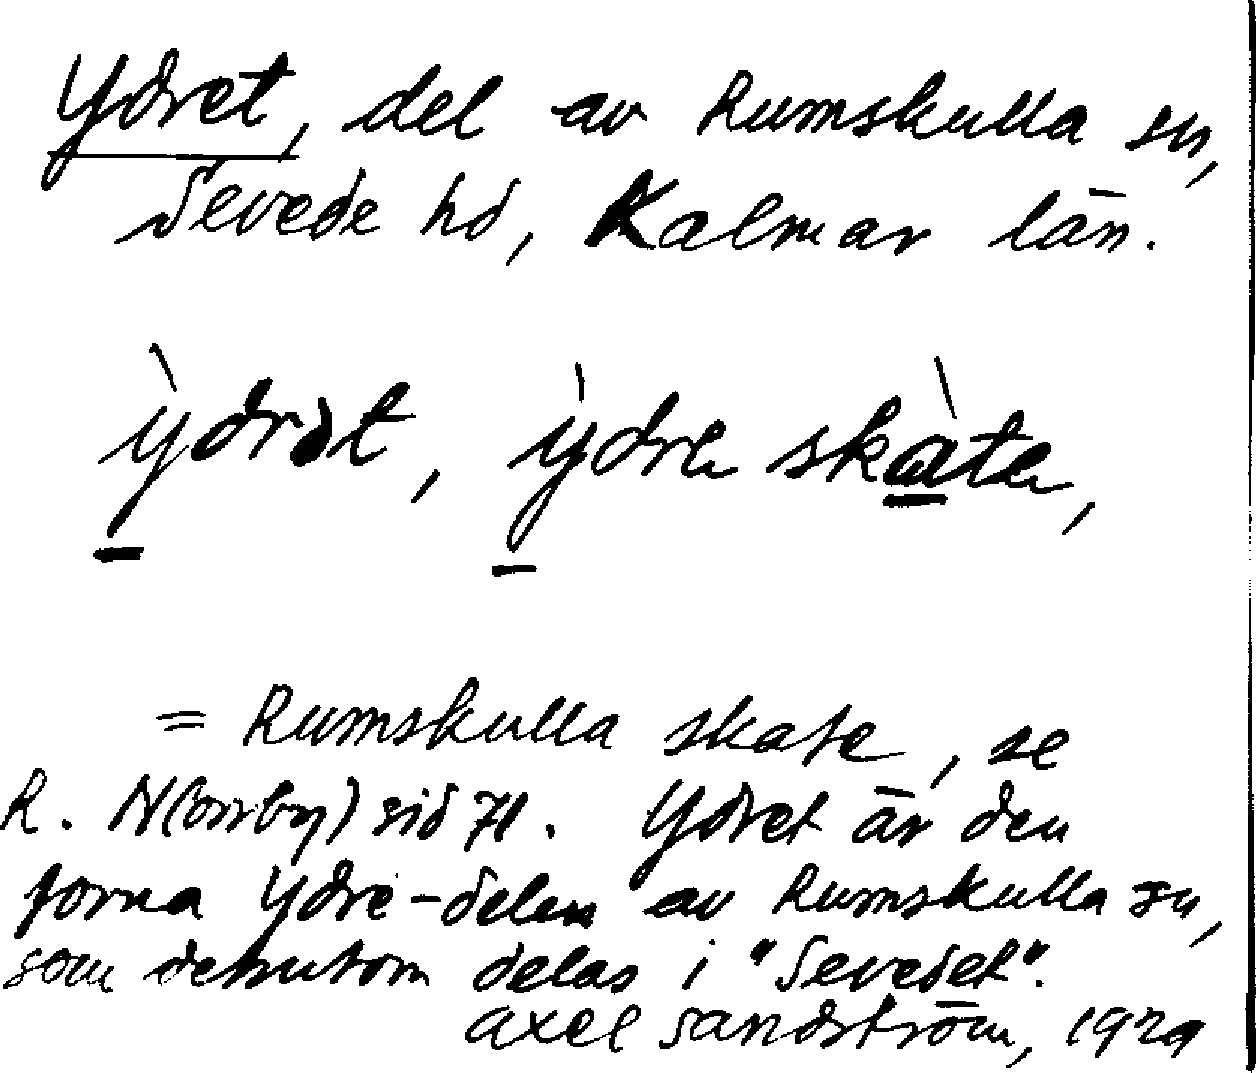 Ydret, del av Rumskulla sn,
Sevede hd, Kalmar län.
ỳdrət, ỳdre skàte,
= Rumskulla skate, se
R. N(orrby) sid 71. Ydret är den
forna Ydre-delen av Rumskulla sn,
som dessutom delas i "Sevedet".
Axel Sandström, 1929